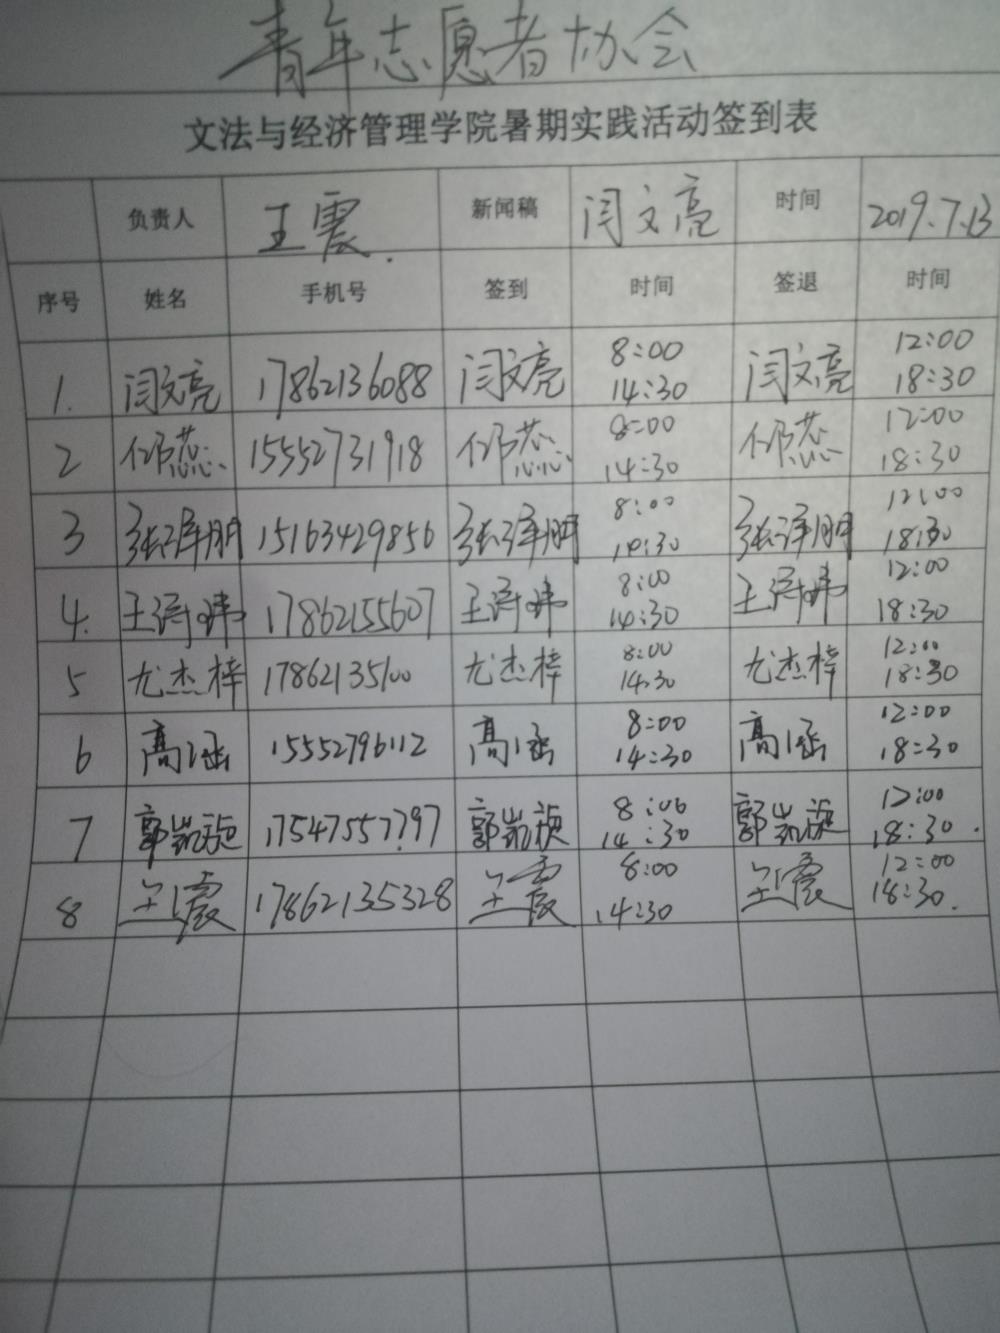 青年志愿者协会
文法与经济管理学院暑期实践活动签到表
负责人 王震 新闻稿 闫文亮 时间 2019.7.13
序号 姓名 手机号 签到 时间 签退 时间
1. 闫文亮 17862136088 闫文亮 8:00 14:30 闫文亮 12:00 18:30
2 邻蕊 15552731918 邻蕊 8:00 14:30 邻蕊 12:00 18:30
3 张泽朋 15163429856 张泽朋 8:00 14:30 张泽朋 12:00 18:30
4. 王 17862155607 王 8:00 14:30 王 12:00 18:30
5 尤杰梓 17862135100 尤杰梓 8:00 14:30 尤杰梓 12:00 18:30
6 高涵 15552796112 高涵 8:00 14:30 高涵 12:00 18:30
7 郭凯旋 17547557797 郭凯旋 8:00 14:30 郭凯旋 12:00 18:30.
8 王震 17862135328 王震 8:00 14:30 王震 12:00 18:30.